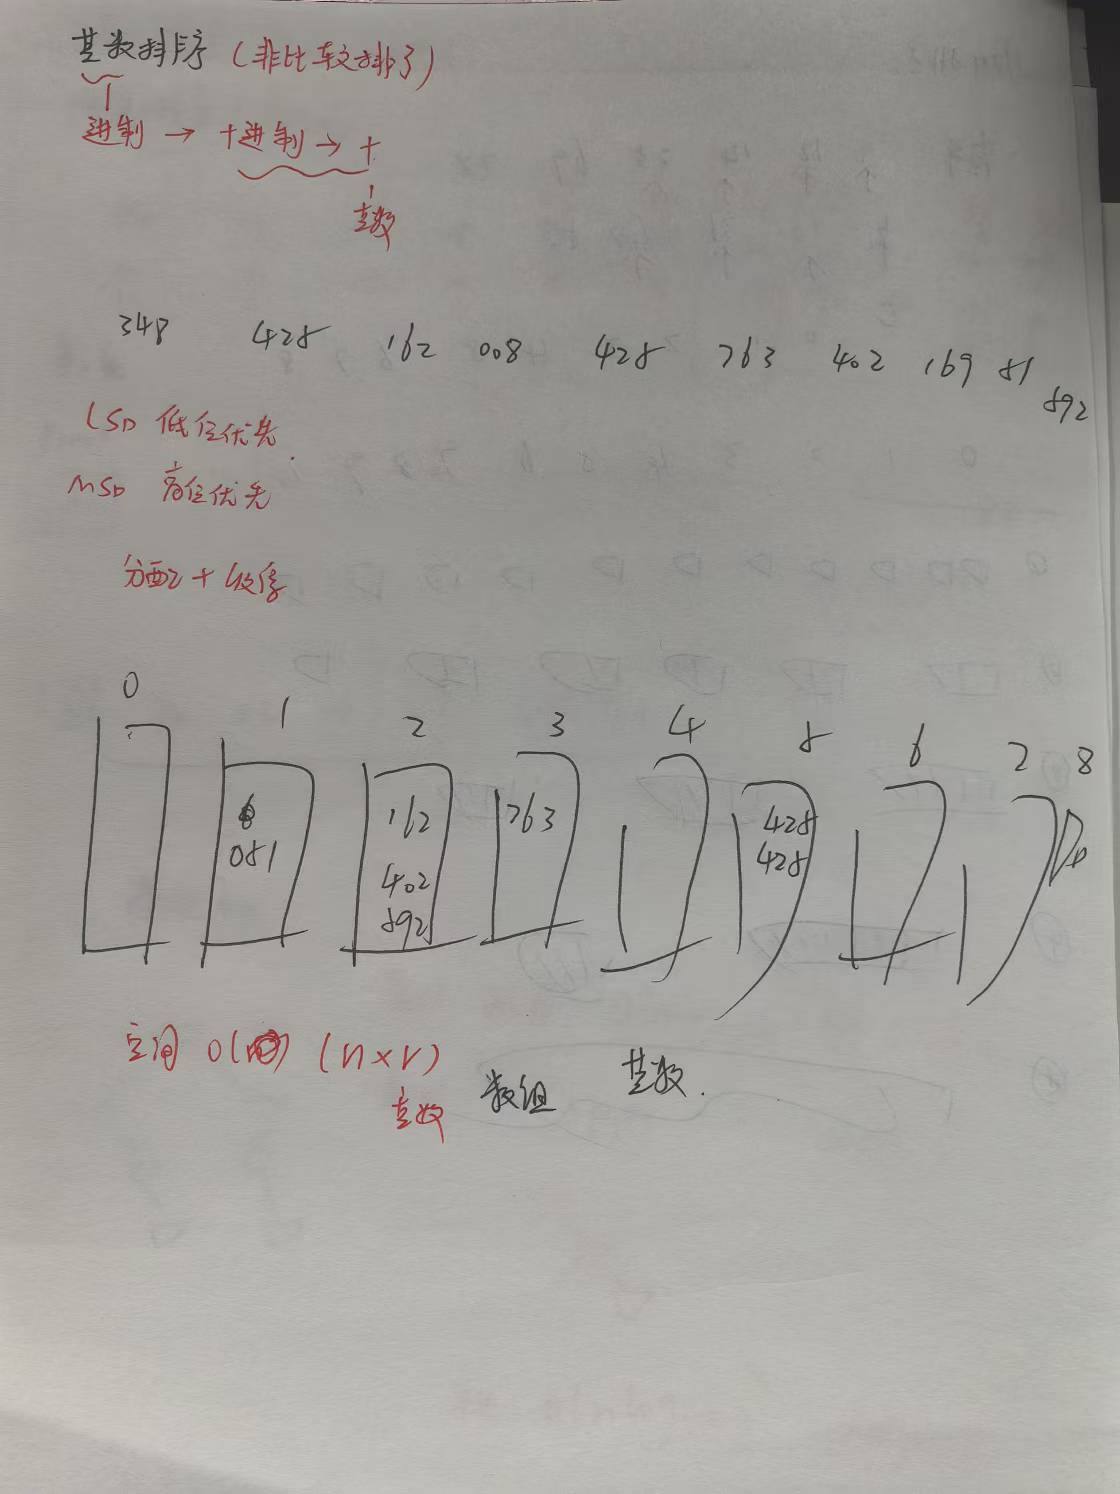 基数排序 (非比较排序)
进制 → 十进制 → 十
基数
348 428 162 008 428 763 402 169 81
892
LSD 低位优先
MSD 高位优先
分配 + 收集
0 1 2 3 4 5 6 7 8
162 763 428
081 428
402
892
空间 O( (n×r)
基数 数组 基数.